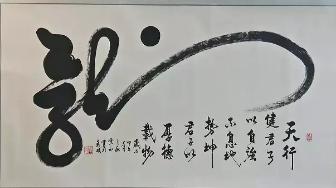 龍
天行
健君子
以自強
不息地
勢坤
君子以
厚德
載物